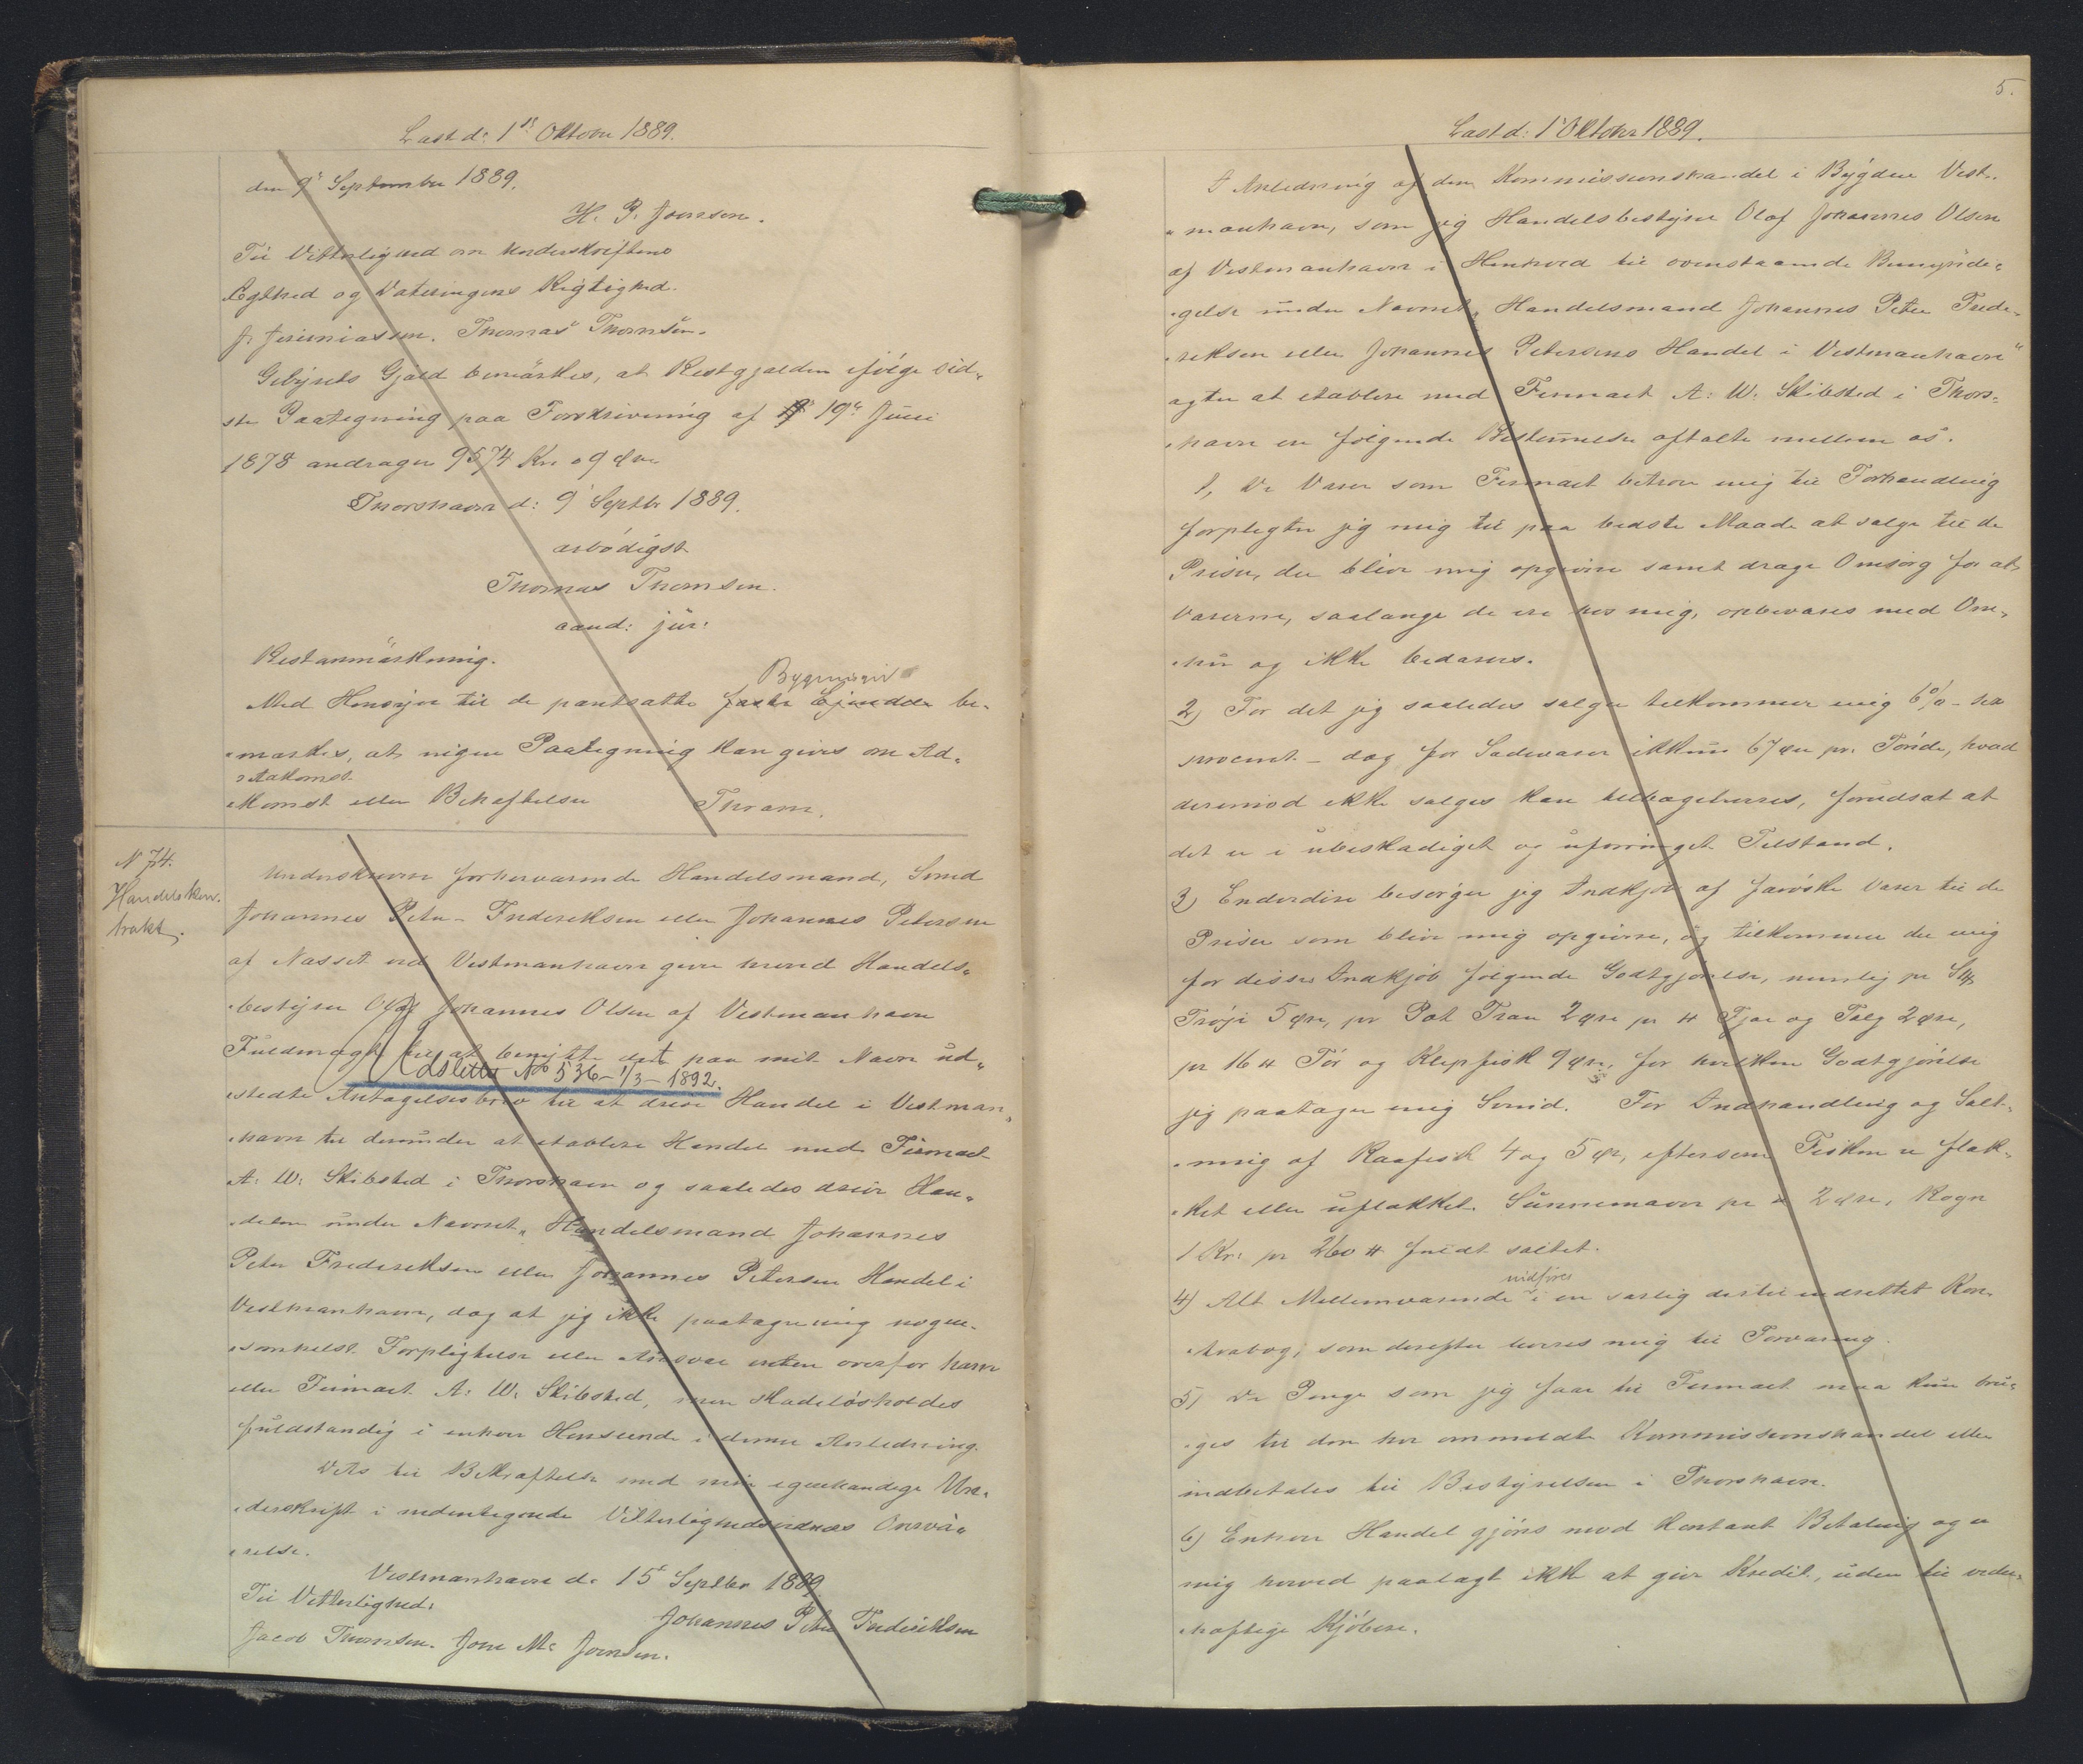 Læst d: 1ste Oktober 1889.
den 9' September 1889.
H. P. Joensen.
Til Vitterlighed om Underskriftens
Ægthed og Dateringens Rigtighed.
J. Jeremiassen. Thomas Thomsen.
Gebyrets Gjæld bemærkes, at Restgjælden ifølge sid„
ste Paategning paa Forskrivning af 19de Juni
1878 andrager 9574 Kr. 09 Øre
Thorshavn d: 9' Septbr 1889.
ærbødigst
Thomas Thomsen.
cand: jur:
Retsanmærkning.
Bygninger
Med Hensyn til de pantsatte faste Ejendele be„
„mærkes, at ingen Paategning kan gives om Ad„
Adkomst
„komst eller Behæftelser Thram.
N 74.
Handelskon„
trakt.
Underskrevne forhenværende Handelsmand, Smed
Johannes Peter Frederiksen eller Johannes Petersen
af Nesset ved Vestmanhavn giver herved Handels„
„bestyrer Olaf Johannes Olsen af Vestmanhavn
Fuldmagt til at benytte det paa mit Navn ud„
Udslettet No 536 - 1/3 - 1892.
„stedte Antagelsesbrev til at drive Handel i Vestman„
„havn til derunder at etablere Handel med Firmaet
A: W: Skibsted i Thorshavn og saaledes drive Han„
„delen under Navnet „Handelsmand Johannes
Peter Frederiksen eller Johannes Petersen Handel i
Vestmanhavn, dog at jeg ikke paatager mig nogen„
„somhelst Forpligtelse eller Ansvar enten overfor ham
eller Firmaet A: W: Skibsted, men skadesløsholdes
fuldstændig i enhver Henseende i denne Anledning.
Dets til Bekræftelse med min egenhændige Un„
„derskrift i nedentegnede Vitterlighedsvidners Overvæ„
„relse.
Vestmanhavn d. 15' Septbr 1889
Til Vitterlighed:
Johannes Peter Frederiksen
Jacob Thomsen. Jone Mc Joensen.
5.
Læst d: 1' Oktober 1889.
I Anledning af den Kommissionshandel i Bygden Vest„
„manhavn, som jeg Handelsbestyrer Olaf Johannes Olsen
af Vestmanhavn i Henhold til ovenstaaende Bemyndi„
„gelse under Navnet „Handelsmand Johannes Peter Frede„
„riksen eller Johannes Petersens Handel i Vestmanhavn"
agter at etablere med Firmaet A: W: Skibsted i Thors„
„havn er følgende Bestemmelser aftalte mellem os.
1, De Varer som Firmaet betror mig til Forhandling
forpligter jeg mig til paa bedste Maade at sælge til de
Priser, der bliver mig opgivne samt drage Omsorg for at
Varerne, saalænge de ere hos mig, opbevares med Om„
„hu og ikke bedærves.
2) For det jeg saaledes sælger tilkommer mig 6% - sex
procent - dog for Sædevarer ikkun 67 Øre pr. Tønde, hvad
derimod ikke sælges kan tilbageleveres, forudsat at
det er i ubeskadiget og uforringet Tilstand.
3) Endvidere besørger jeg Indkjøb af færøske Varer til de
Priser som bliver mig opgivne, og tilkommer der mig
for disses Indkjøb følgende Godtgjørelse, nemlig pr Stk
Trøje 5 Øre, pr Pot Tran 2 Øre pr ℔ Fjer og Talg 2 Øre,
pr 16 ℔ Tør og Klipfisk 9 Øre, for hvilken Godtgjørelse
jeg paatager mig Svind. For Indhandling og Salt„
„ning af Raafisk 4 og 5 Øre, eftersom Fisken er flæk„
„ket eller uflækket. Sundemaver pr ℔ 2 Øre, Rogn
1 Kr: pr 260 ℔ fuldt saltet.
indføres
4) Alt Mellemværende i en særlig dertil indrettet Kon„
„trabog, som derefter leveres mig til Forvaring.
5) De Penge som jeg faar til Firmaet maa kun bru„
„ges til den her ommeldte Kommissionshandel eller
indbetales til Bestyrelsen i Thorshavn.
6) Enhver Handel gjøres mod Kontant Betaling og er
mig herved paalagt ikke at give Kredit, uden til veder„
„hæftige Kjøbere.